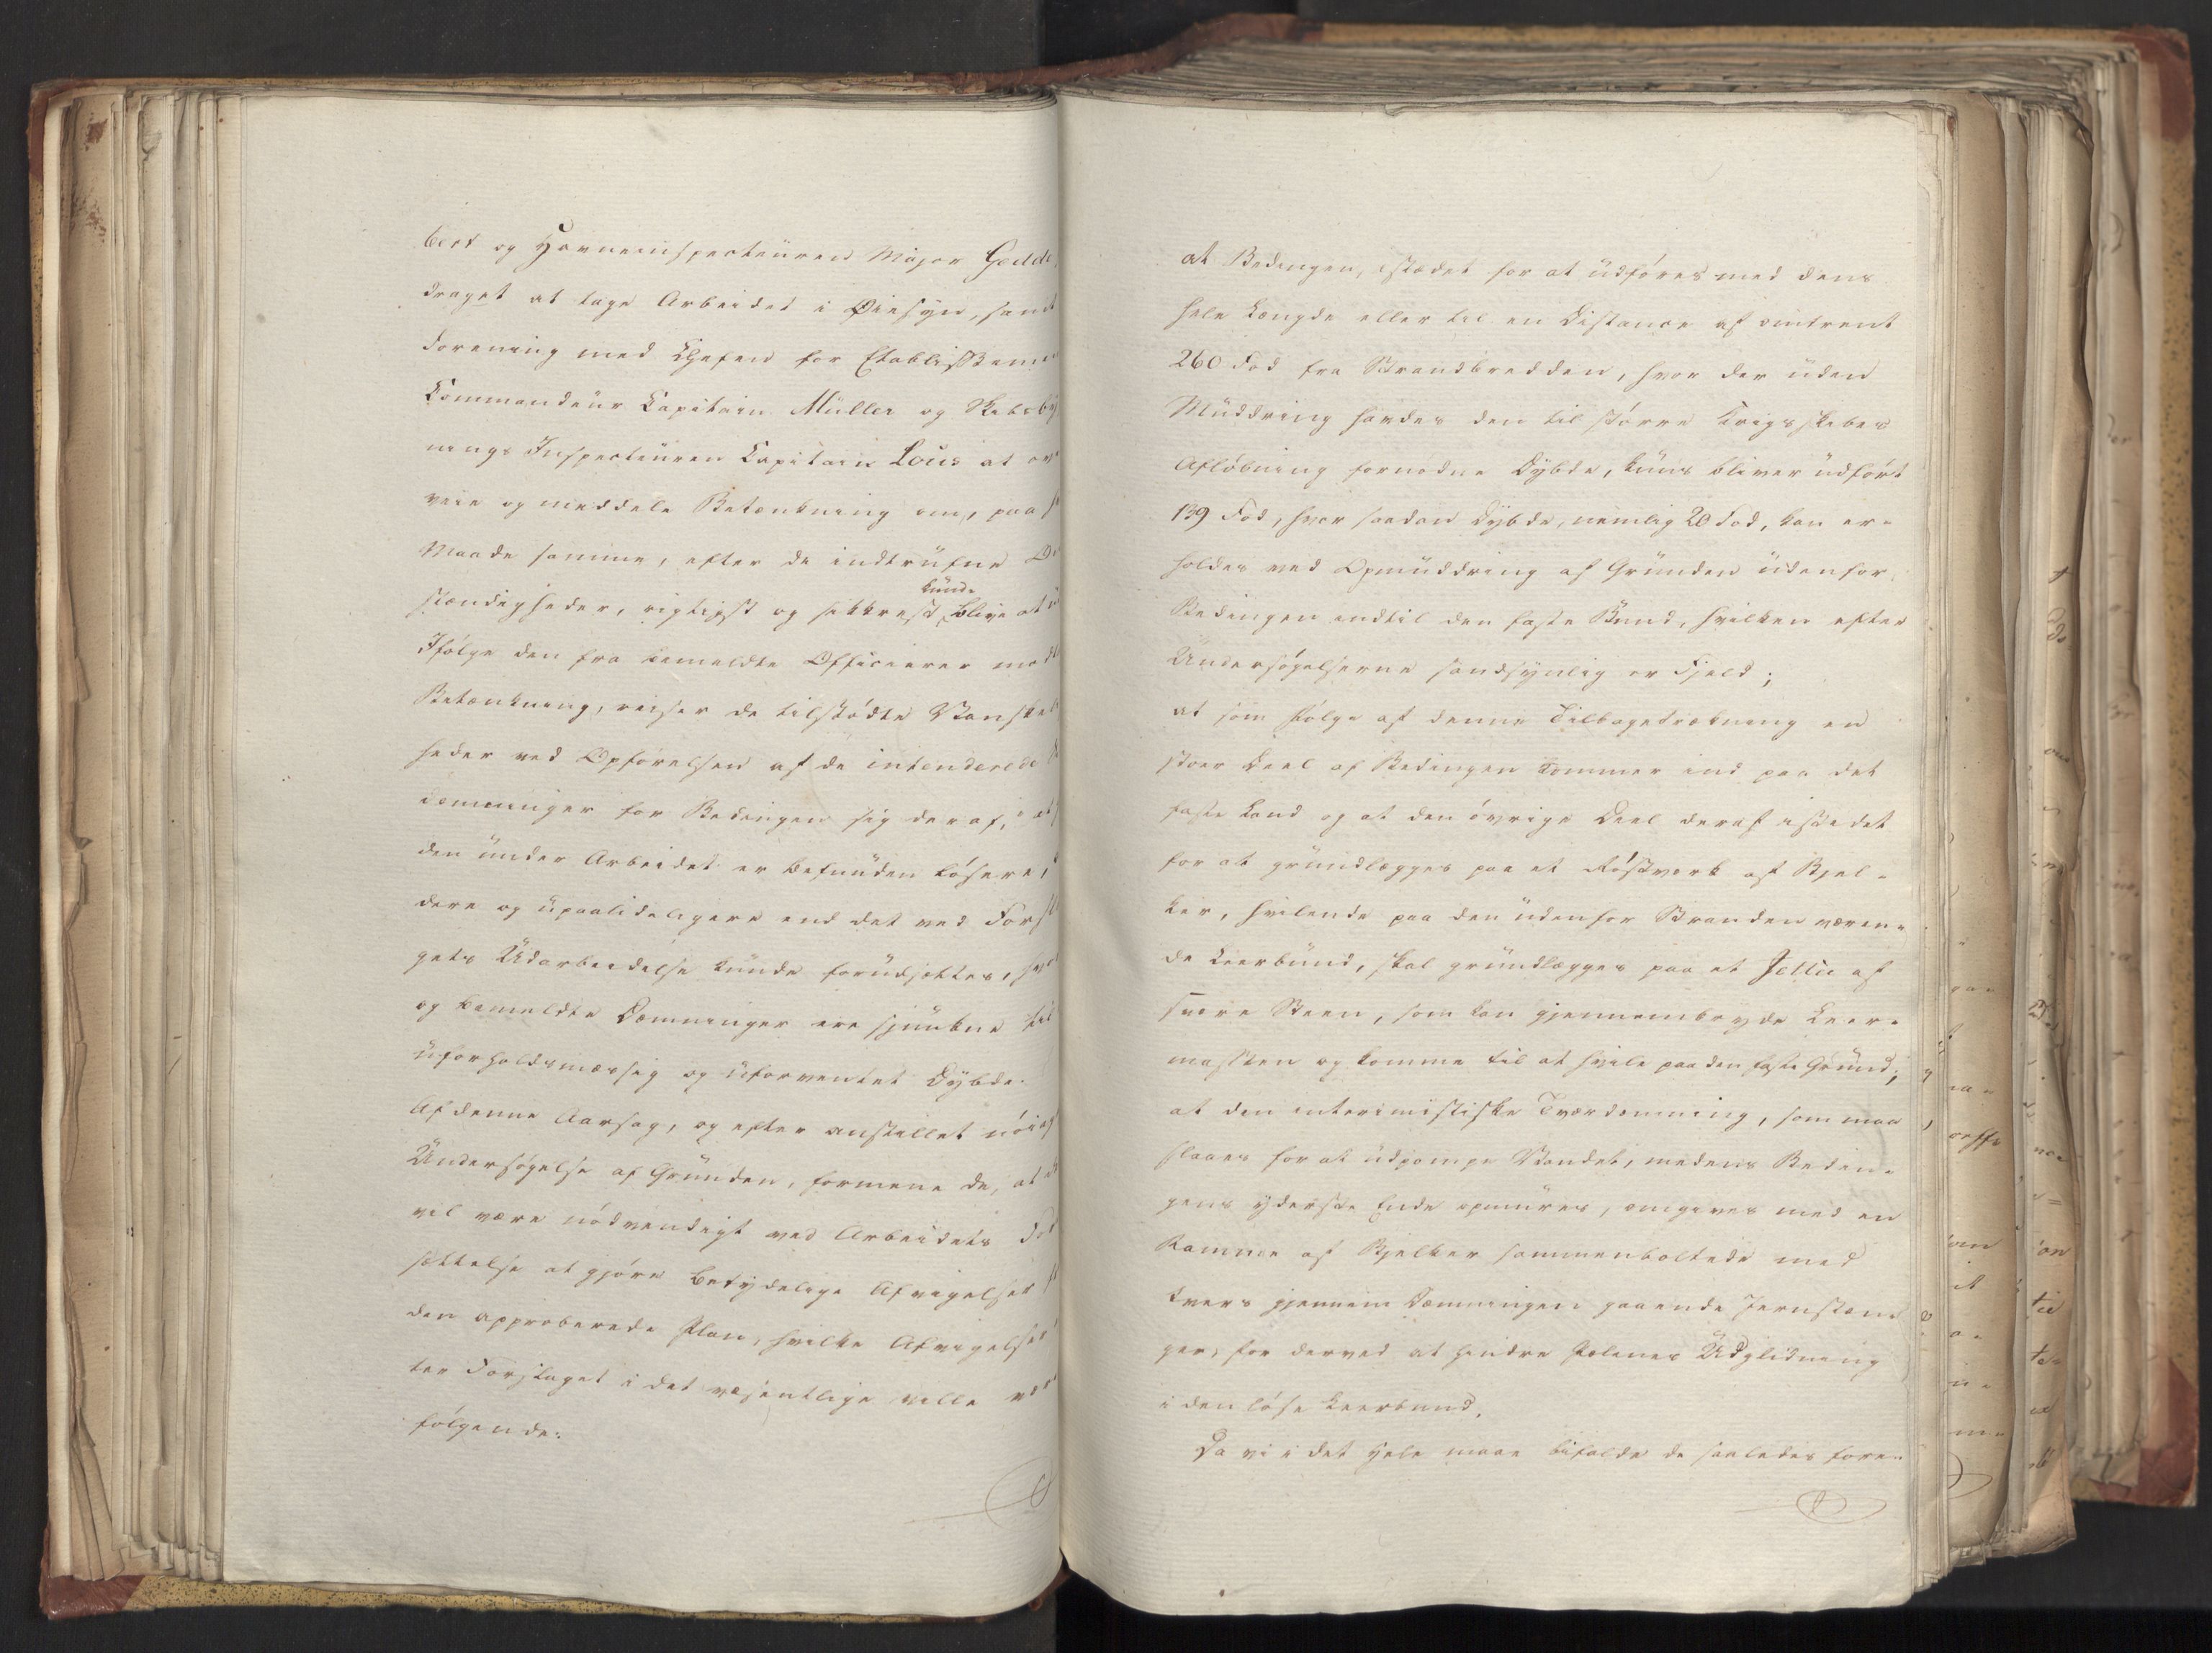 bert og Havneinspecteuren Major Gedde,
draget at tage Arbeidet i Øiesyn, samt
Forening med Chefen for Etablissem
Commandeur Capitain Müller og Skibsby
nings Inspecteuren Capitain Louis at ov
veie og meddele Betænkning om, paa
Maade samme, efter de indtrufne O
stændigheder, rigtigst og sikkrest kunde blive at
Ifølge den fra bemeldte Officierer med
Betænkning, reiser de tilstødte Vanske
heder ved Opførelsen af de intenderede
dæmninger for Bedingen sig deraf, at
den under Arbeidet er befunden løsere,
dere og upaalideligere end det ved Fors
gets Udarbeidelse kunde forudsættes, hvor
og bemeldte Dæmninger ere sjunkne til
uforholdsmæssig og uforventet Dybde.
Af denne Aarsag, og efter anstillet nøiag
Undersøgelse af Grunden, formene de, at
vil være nødvendigt ved Arbeidets For
sættelse at gjøre betydelige Afvigelser
den approberede Plan, hvilke Afvigelser
ter Forslaget i det væsentlige ville vær
følgende:
at Bedingen, istædet for at udføres med dens
hele Længde eller til en Distance af omtrent
260 Fod fra Strandbredden, hvor der uden
Muddring havdes den til større Krigsskibes
Afløbning fornødne Dybde, kuns bliver udført
139 Fod, hvor saadan Dybde, nemlig 20 Fod, kan er-
holdes ved Opmuddring af Grunden udenfor
Bedingen indtil den faste Bund, hvilken efter
Undersøgelserne sandsynlig er Fjeld;
at som Følge af denne Tilbagetrækning en
stoer Deel af Bedingen kommer ind paa det
faste Land og at den øvrige Deel deraf istedet
for at grundlægges paa et Røstverk af Bjel-
ker, hvilende paa den udenfor Stranden væren-
de Leerbund, skal grundlægges paa et Jettée af
svære Steen, som kan gjennembryde Leer-
massen og komme til at hvile paa den faste Grund;
at den interimistiske Tværdæmning, som maa
slaaes for at udpompe Vandet, medens Bedin-
gens yderste Ende opmures, omgives med en
Ramme af Bjelker sammenboltede med
tvers gjennem Dæmningen gaaende Jernstæn
ger, for derved at hindre Pælenes Udglidning
i den løse Leerbund.
Da vi i det Hele maae bifalde de saaledes fore-